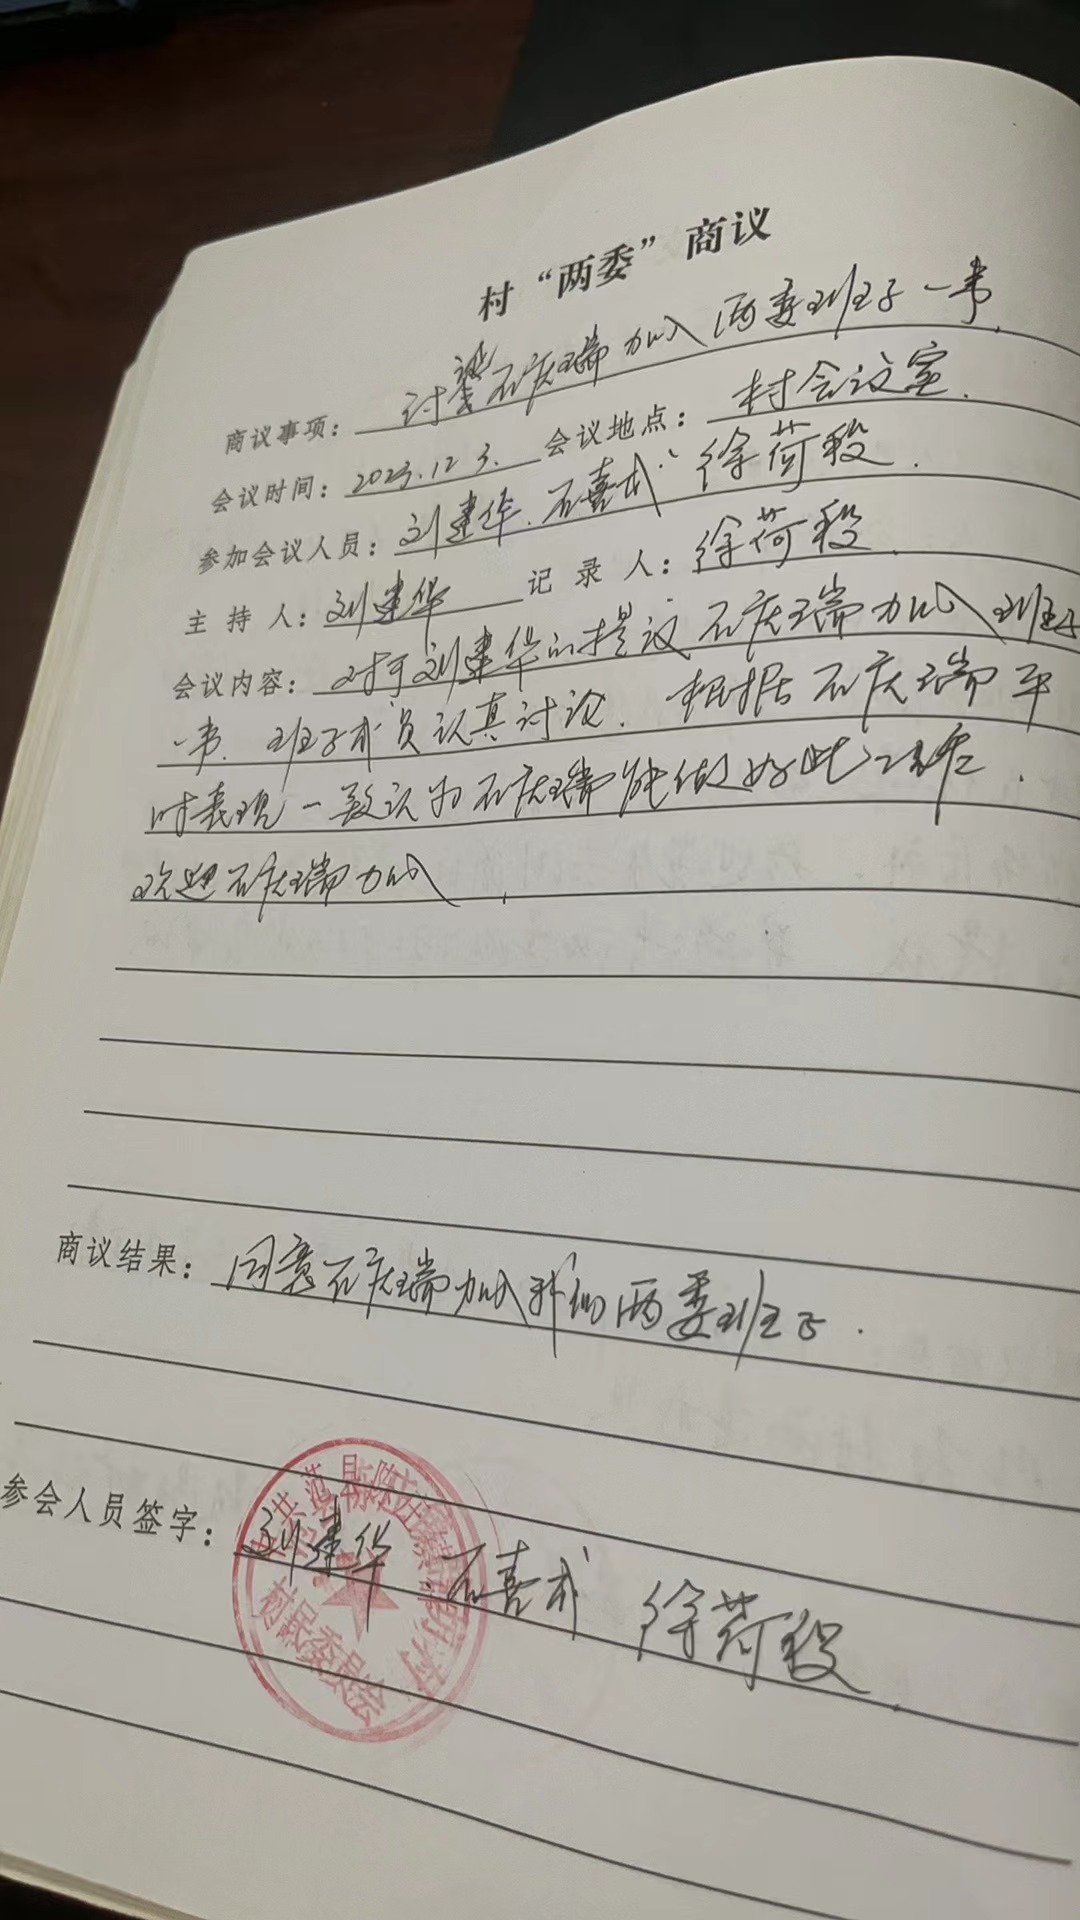 村“两委”商议
商议事项：讨论石庆瑞加入两委班子一事.
会议时间：2023.12.3. 会议地点：村会议室.
参加会议人员：刘建华、石喜成、徐荷段.
主持人：刘建华 记录人：徐荷段.
会议内容：对于刘建华的提议石庆瑞加入班子
一事. 班子成员认真讨论. 根据石庆瑞平
时表现一致认为石庆瑞能做好此工作.
欢迎石庆瑞加入.
商议结果：同意石庆瑞加入我们两委班子.
参会人员签字：刘建华 石喜成 徐荷段.
村民委员会